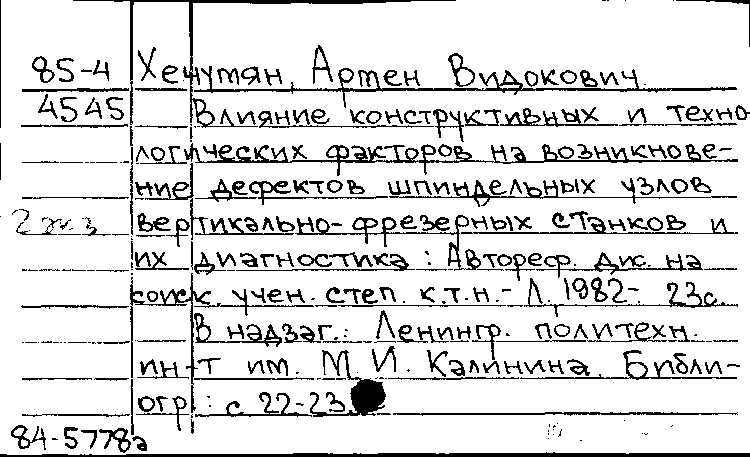 85-4 Хечумян, Артен Видокович
4545 Влияние конструктивных и техно
логических факторов на возникнове-
ние дефектов шпиндельных узлов
2 экз вертикально-фрезерных станков и
их диагностика : Автореф. дис. на
соиск. учен. степ. к.т.н. - Л. 1982 - 23с.
В надзаг.: Ленингр. политехн.
ин-т им. М. И. Калинина. Библи-
огр.: с 22-23.
84-5778а